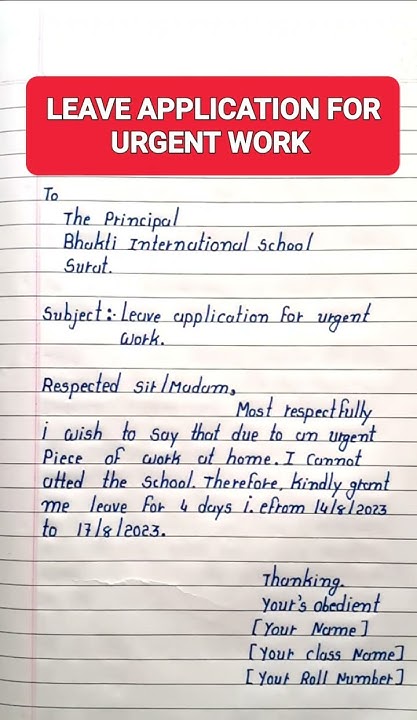 LEAVE APPLICATION FOR
URGENT WORK
To
The Principal
Bhakti International School
Surat.
Subject:- Leave application for urgent
work.
Respected Sir/Madam,
Most respectfully
i wish to say that due to an urgent
Piece of work at home. I Cannot
atted the school. Therefore, kindly grant
me leave for 4 days i. efrom 14/8/2023
to 17/8/2023.
Thanking.
Your's obedient
[Your Name]
[Your class Name]
[Your Roll Number]